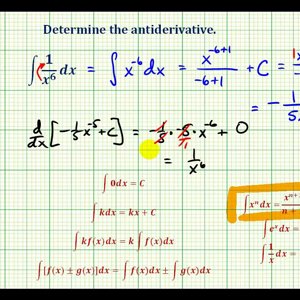 Determine the antiderivative.
∫ 1/x⁶ dx = ∫ x⁻⁶ dx = x⁻⁶⁺¹/-6+1 + C =
= -1/5
d/dx [-1/5 x⁻⁵ + C] = -1/5 · -5/1 · x⁻⁶ + 0
= 1/x⁶
∫ 0dx = C
∫ kdx = kx + C
∫ kf(x)dx = k ∫ f(x)dx
∫[f(x) ± g(x)]dx = ∫ f(x)dx ± ∫ g(x)dx
∫ xⁿ dx = xⁿ⁺
n +
∫ eˣ dx =
∫ 1/x dx =